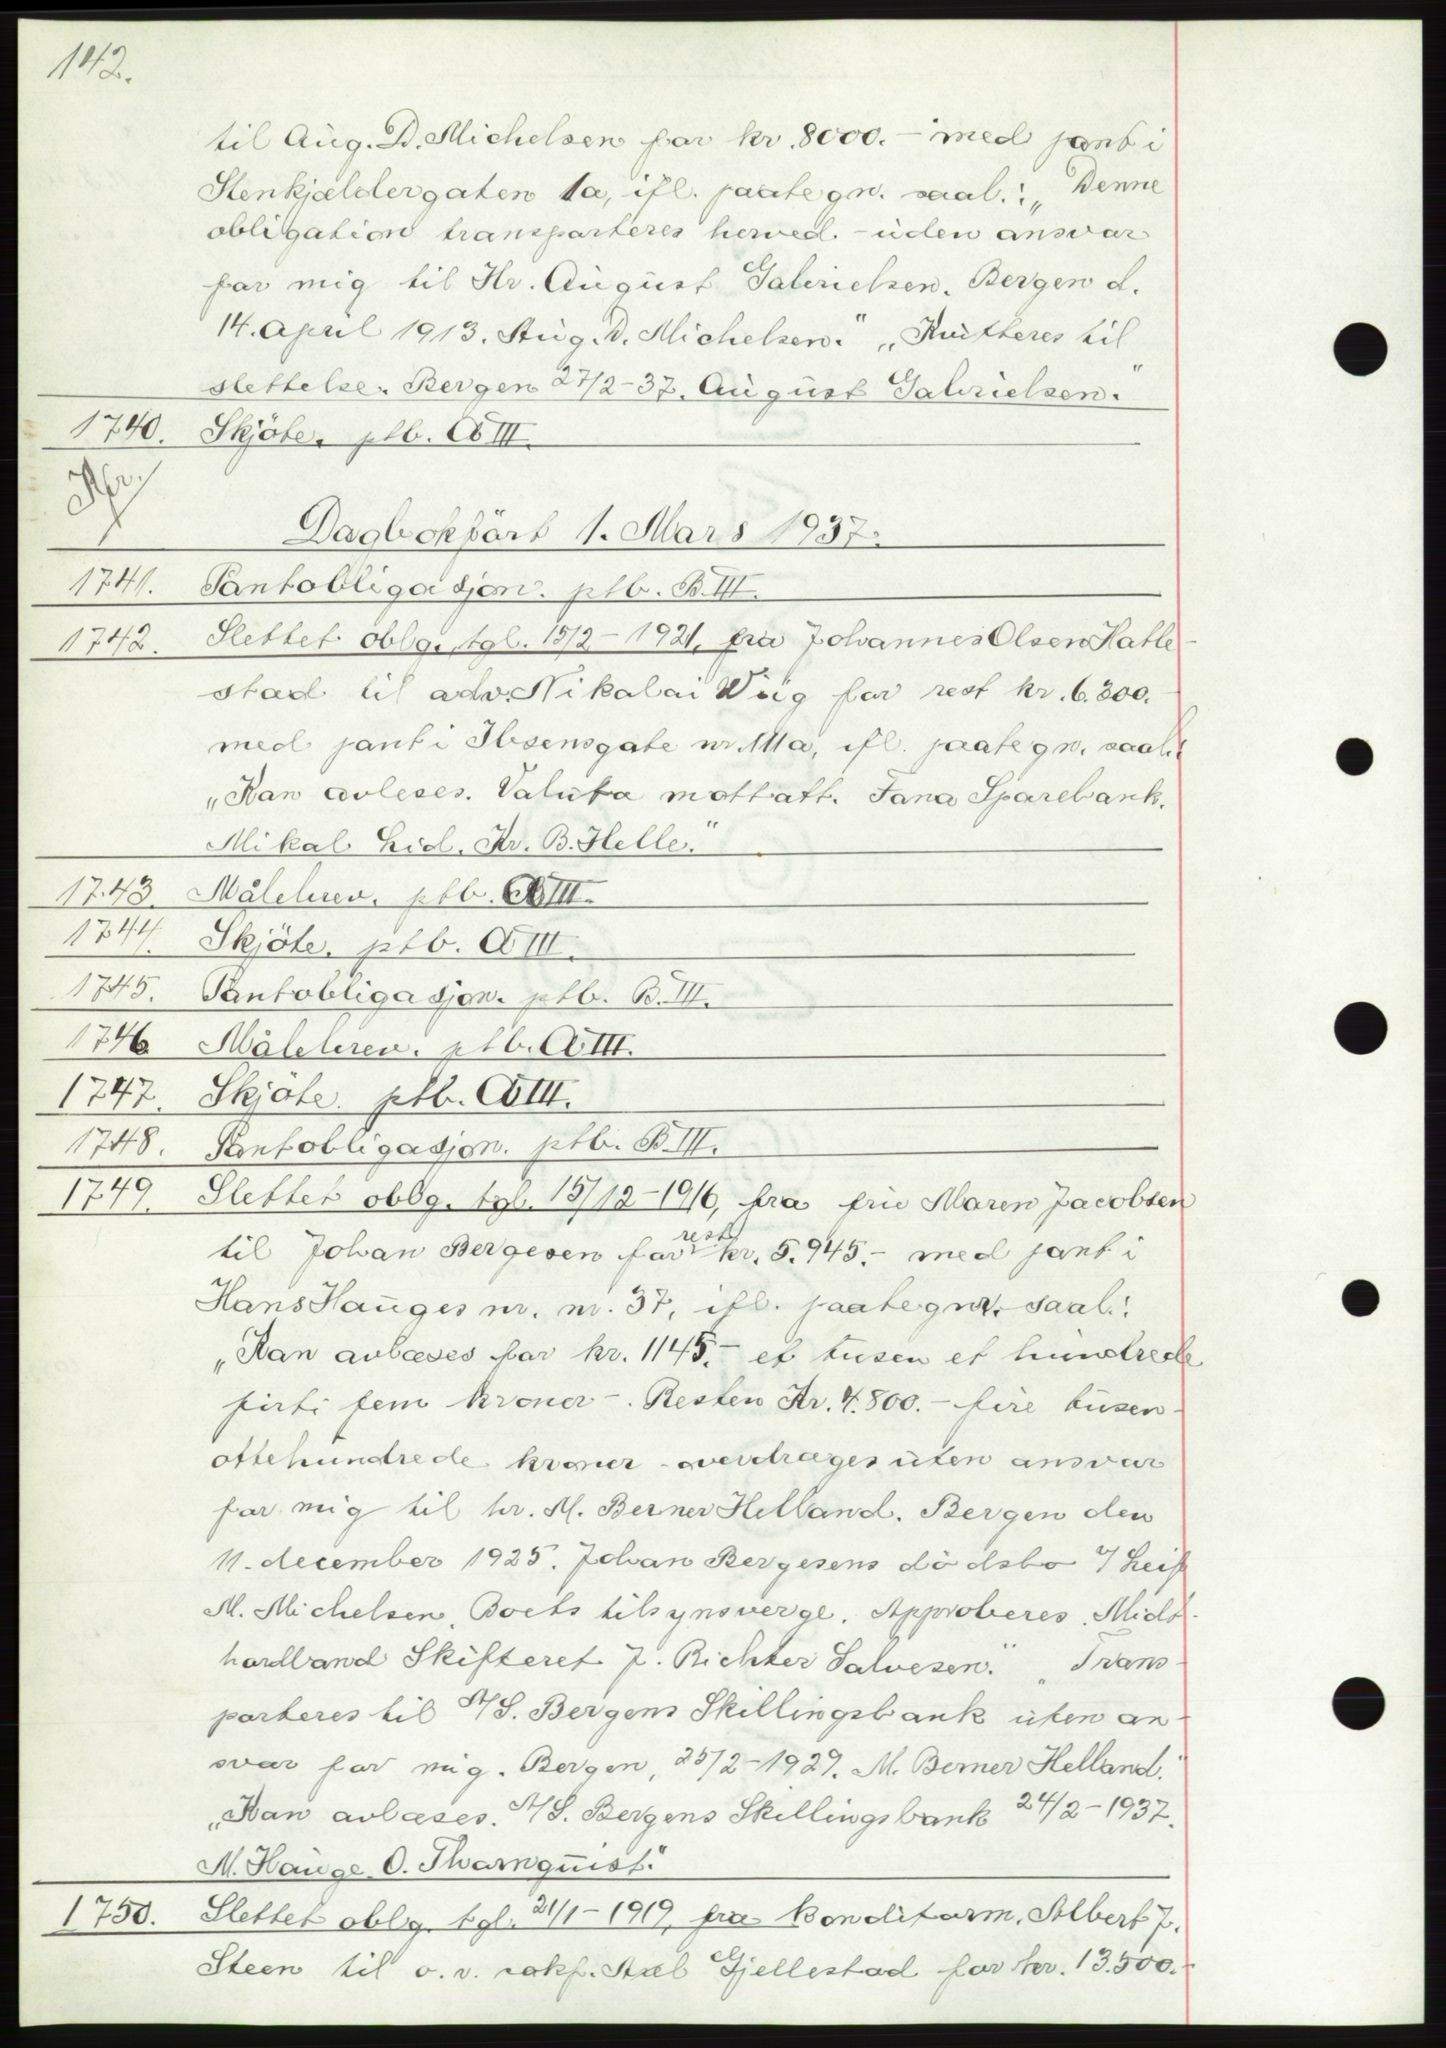 142.
til Aug. D. Michelsen for kr. 8000.- med pant i
Stenkjældergaten 1a, ifl. paategn. saal.: „Denne
obligation transporteres herved - uden ansvar
for mig til Hr. August Gabrielsen. Bergen d.
14. april 1913. Aug. D. Michelsen." „Kvitteres til
slettelse. Bergen 27/2-37. August Gabrielsen."
1740. Skjöte. ptb. A III.
Dagbokfört 1. Mars 1937.
1741. Pantobligasjon. ptb. B. III.
1742. Slettet oblg. tgl. 15/2-1921, fra Johannes Olsen Hatle-
stad til adv. Nikolai Wiig for rest kr. 6.300.-
med pant i Ibsensgate nr. 111a, ifl. paategn. saal.:
„Kan avleses. Valuta mottatt. Fana Sparebank.
Mikal Lid. Kr. B. Helle."
1743. Målebrev. ptb. A III.
1744. Skjöte. ptb. A III.
1745. Pantobligasjon. ptb. B. III.
1746 Målebrev. ptb. A III.
1747. Skjöte. ptb. A III.
1748. Pantobligasjon. ptb. B. III.
1749. Slettet oblg. tgl. 15/12-1916, fra fru Maren Jacobsen
til Johan Bergesen for rest kr. 5.945.- med pant i
Hans Hauges nr. nr. 37, ifl. paategn. saal.:
„Kan avlæses for kr. 1145.- et tusen et hundrede
firti fem kroner -. Resten Kr. 4.800.- fire tusen-
ottehundrede kroner - overdrages uten ansvar
for mig til hr. M. Berner Helland. Bergen den
11. december 1925. Johan Bergesens dödsbo v/ Leif
M. Michelsen, Boets tilsynsverge. Approberes. Midt-
hordland Skifteret J. Richter Salvesen." „Trans-
porteres til A/S. Bergens Skillingsbank uten an-
svar for mig. Bergen, 25/2-1929. M. Berner Helland."
„Kan avlæses. A/S. Bergens Skillingsbank 24/2-1937.
M. Hauge O. Thornquist."
1750. Slettet oblg. tgl. 21/1-1919, fra Konditorm. Albert J.
Steen til o. r. sakf. Axel Gjellestad for kr. 13.500.-